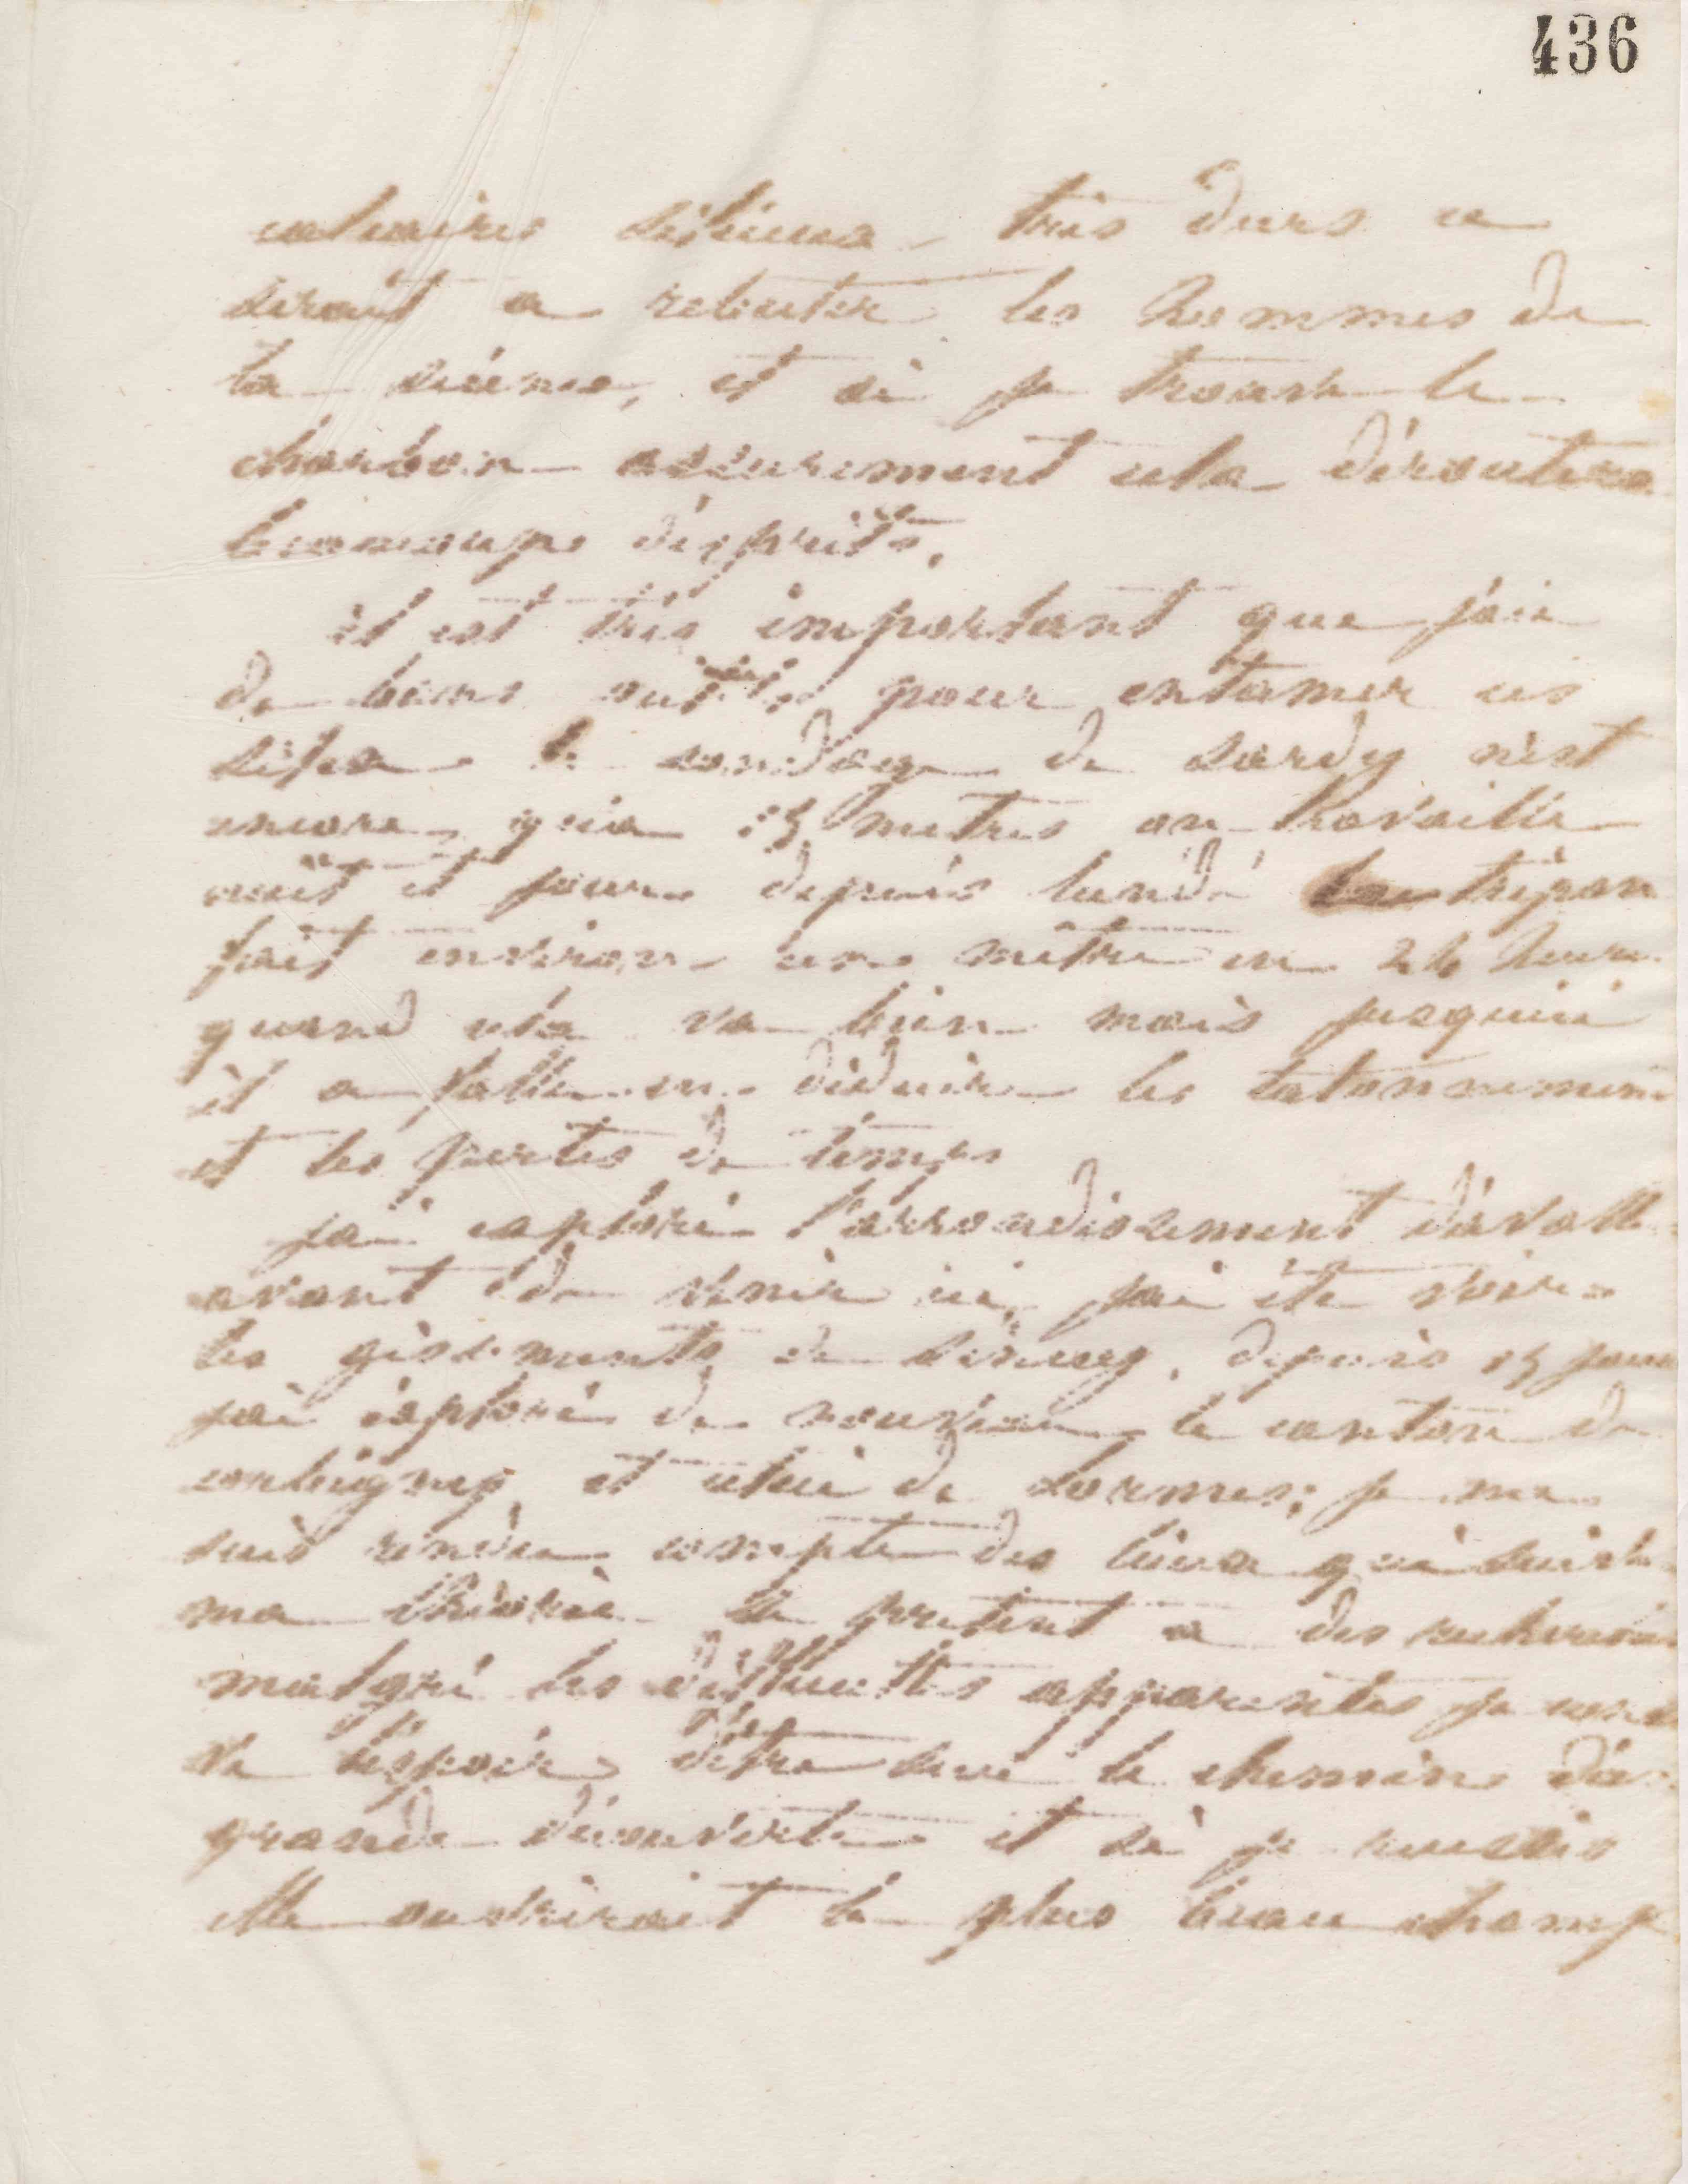 436
calcaires siliceux très durs ce
serait a rebuter les hommes de
la siéna, et si je trouve le
charbon assurement cela déroutera
beaucoups d'esprits,
il est très important que jaie
de bons outils pour entamer ces
silex le sondage de Sardy n'est
encore qu'a 15 metres on travaille
nuit et jour depuis lundi le trépan
fait environ un mètre en 24 heure
quand cela va bien mais jusquici
il a fallu en déduire les tatonnement
et les pertes de temps
jai exploré l'arrondissement d'avall
avant de venir ici, jai été voir
les gisements de Sincey, depuis 15 jours
jai éxploré de nouveau le canton de
corbigny, et celui de Lormes; je me
suis rendu compte des lieux qui suivent
ma théorie se pretent a des recherches
malgré les apparentes je
de léspoir d'être sur le chemin d'a
grande découverte et si je reussis
elle ouvrirait le plus beau champ